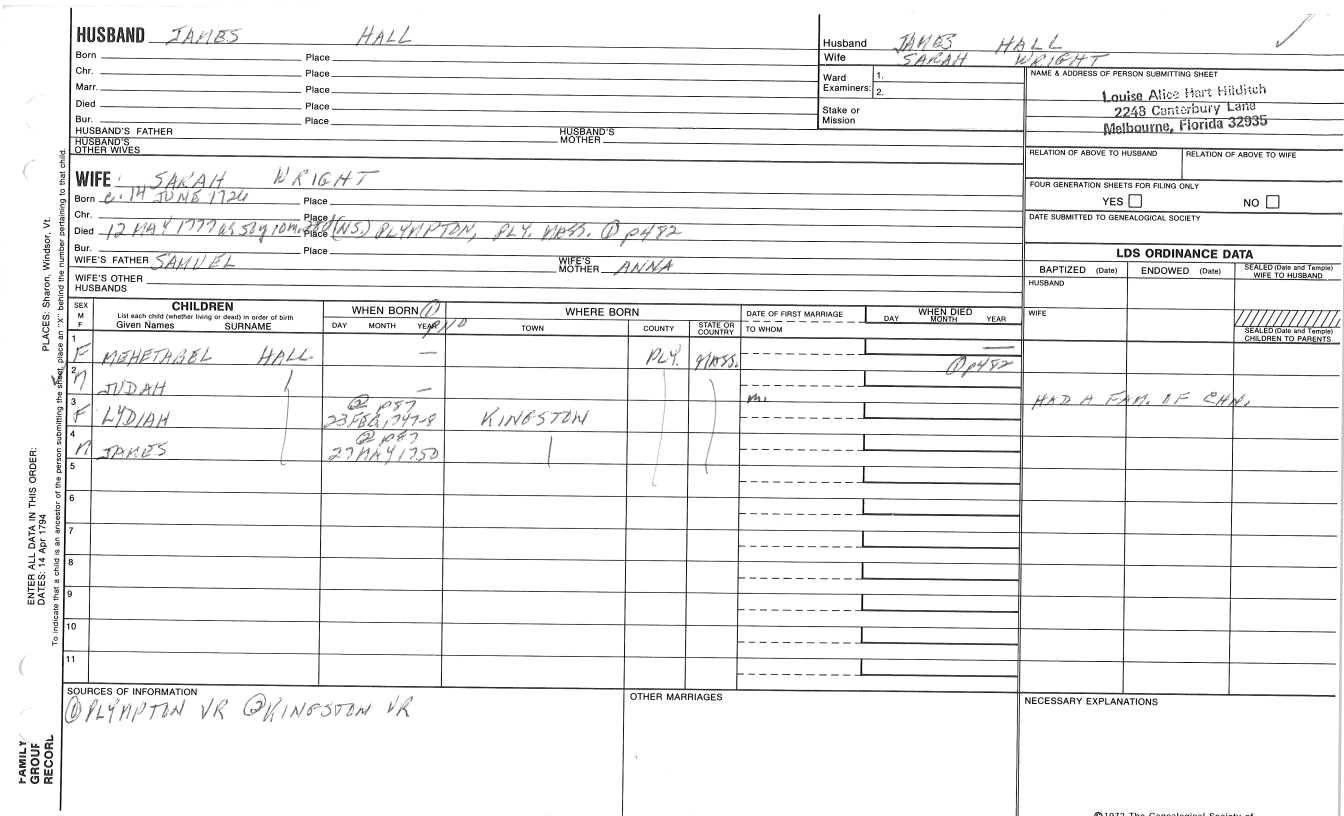 HUSBAND JAMES HALL
Born Place
Chr. Place
Marr. Place
Died Place
Bur. Place
HUSBAND'S FATHER HUSBAND'S MOTHER
HUSBAND'S OTHER WIVES
Husband JAMES HALL
Wife SARAH WRIGHT
Ward Examiners: 1. 2.
Stake or Mission
NAME & ADDRESS OF PERSON SUBMITTING SHEET
Louise Alice Hart Hilditch
2248 Canterbury Lane
Melbourne, Florida 32935
RELATION OF ABOVE TO HUSBAND RELATION OF ABOVE TO WIFE
FOUR GENERATION SHEETS FOR FILING ONLY
YES NO
DATE SUBMITTED TO GENEALOGICAL SOCIETY
WIFE SARAH WRIGHT
Born c. 14 JUNE 1726 Place
Chr. Place
Died 12 MAY 1777 Place (NS.) PLYMPTON, PLY. MASS. ① p482
Bur. Place
WIFE'S FATHER SAMUEL WIFE'S MOTHER ANNA
WIFE'S OTHER HUSBANDS
LDS ORDINANCE DATA
BAPTIZED (Date) ENDOWED (Date) SEALED (Date and Temple) WIFE TO HUSBAND
HUSBAND
WIFE
SEALED (Date and Temple) CHILDREN TO PARENTS
SEX M F CHILDREN WHEN BORN ① WHERE BORN DATE OF FIRST MARRIAGE WHEN DIED
List each child (whether living or dead) in order of birth
Given Names SURNAME DAY MONTH YEAR TOWN COUNTY STATE OR COUNTRY TO WHOM DAY MONTH YEAR
1 F MEHETABEL HALL — PLY. MASS. — ① p482
2 M JUDAH —
3 F LYDIAH ② p87 23 FEB, 1747-8 KINGSTON m. HAD A FAM. OF CHN.
4 M JAMES ② p87 27 MAY 1750
5
6
7
8
9
10
11
SOURCES OF INFORMATION
① PLYMPTON VR ② KINGSTON VR
OTHER MARRIAGES
NECESSARY EXPLANATIONS
©1972 The Genealogical Society of
PLACES: Sharon, Windsor, Vt.
ENTER ALL DATA IN THIS ORDER:
DATES: 14 Apr 1794
To indicate that a child is an ancestor of the person submitting the sheet, place an "X" behind the number pertaining to that child.
FAMILY GROUP RECORD